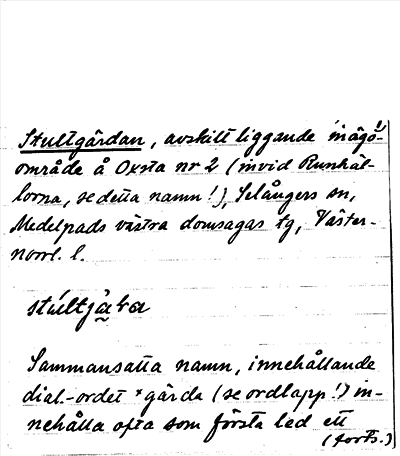 Stultgärdan, avskilt liggande inägo-
område å Oxsta nr 2 (invid Runhäl-
lorna, se detta namn!), Selångers sn,
Medelpads västra domsagas tg, Väster-
norrl. l.
Sammansatta namn, innehållande
dial.-ordet *gärda (se ordlapp!) in-
nehålla ofta som första led ett
(forts.)